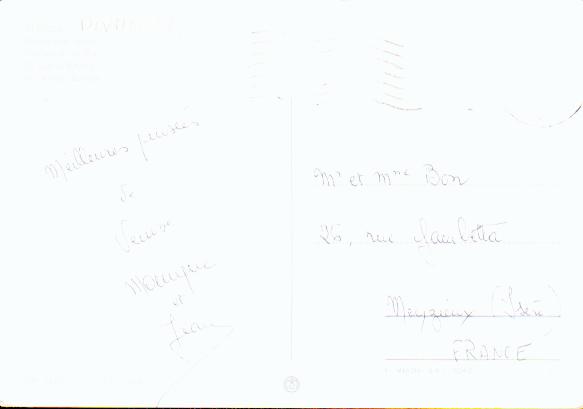 Meilleures pensées
de
Venise
Monique
et
Jean
Mr et Mme Bon
26, rue Gambetta
Meyzieux (Isère)
FRANCE